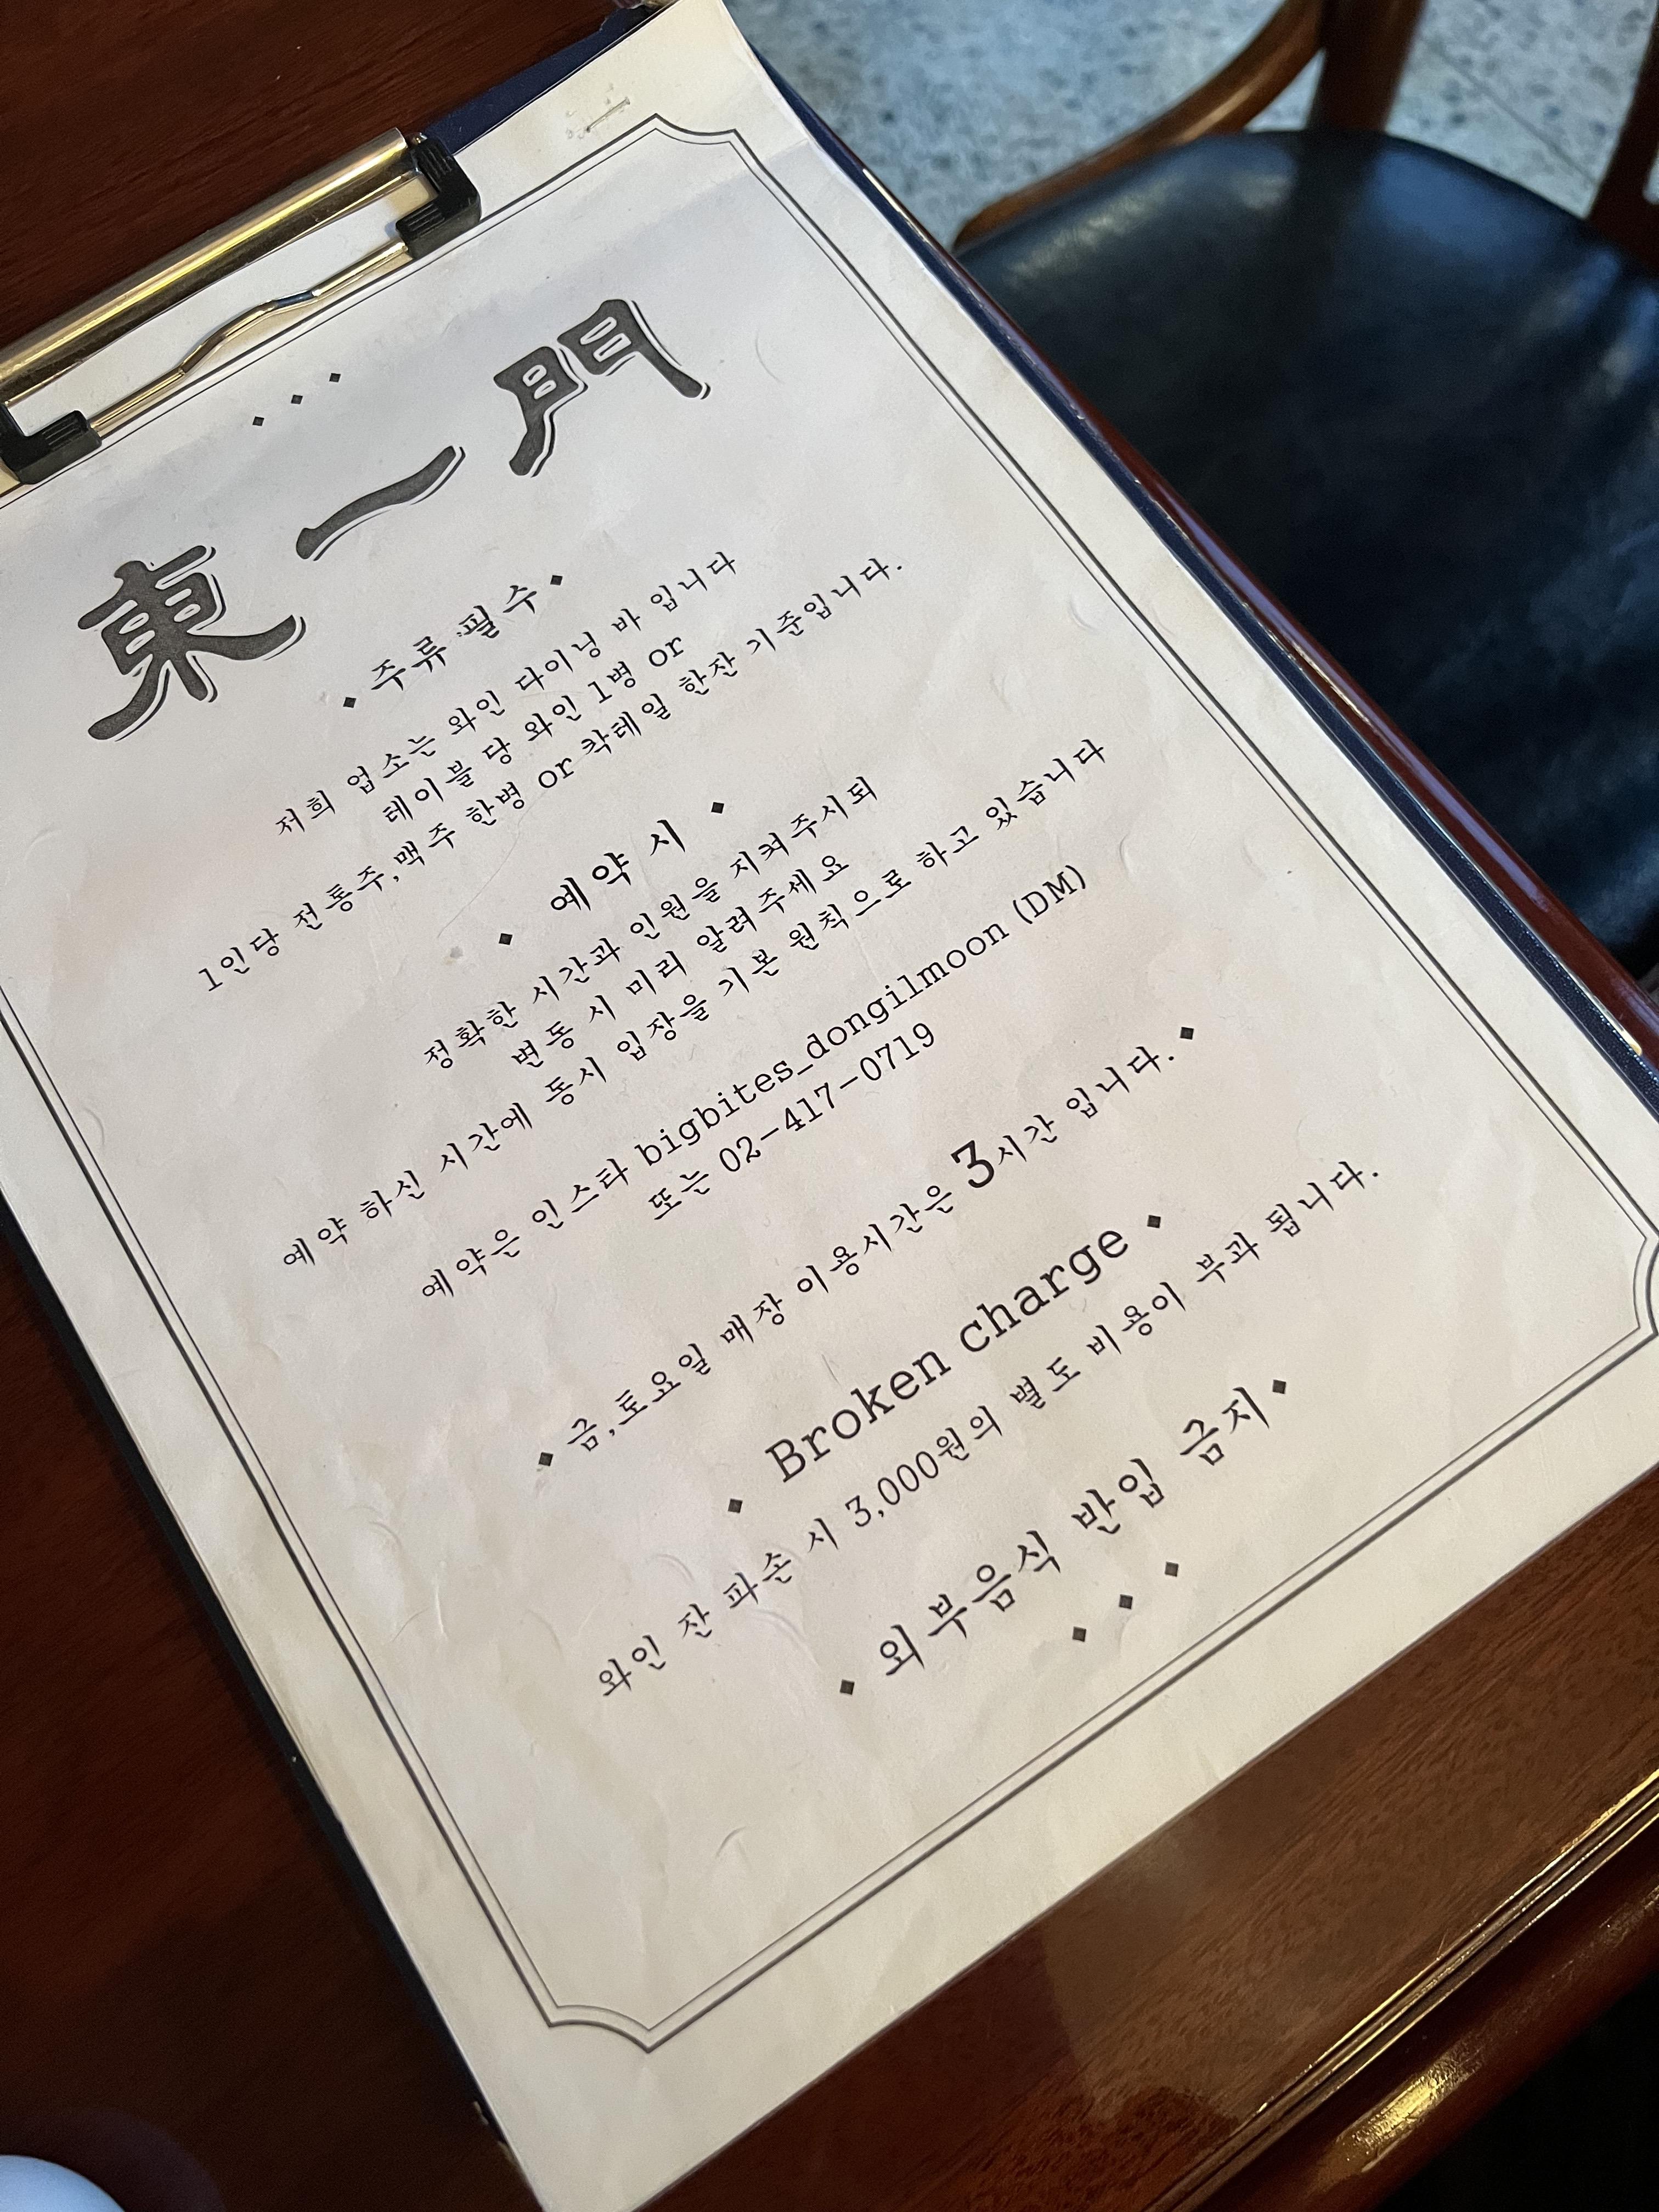 東一門
주류 필수
저희 업소는 와인 다이닝 바 입니다
테이블 당 와인 1병 or
1인당 전통주,맥주 한병 or 칵테일 한잔 기준입니다.
예약 시
정확한 시간과 인원을 지켜주시되
변동 시 미리 알려주세요
예약 하신 시간에 동시 입장을 기본 원칙으로 하고 있습니다
예약은 인스타 bigbites_dongilmoon (DM)
또는 02-417-0719
금,토요일 매장 이용시간은 3시간 입니다.
Broken charge
와인 잔 파손 시 3,000원의 별도 비용이 부과 됩니다.
외부음식 반입 금지